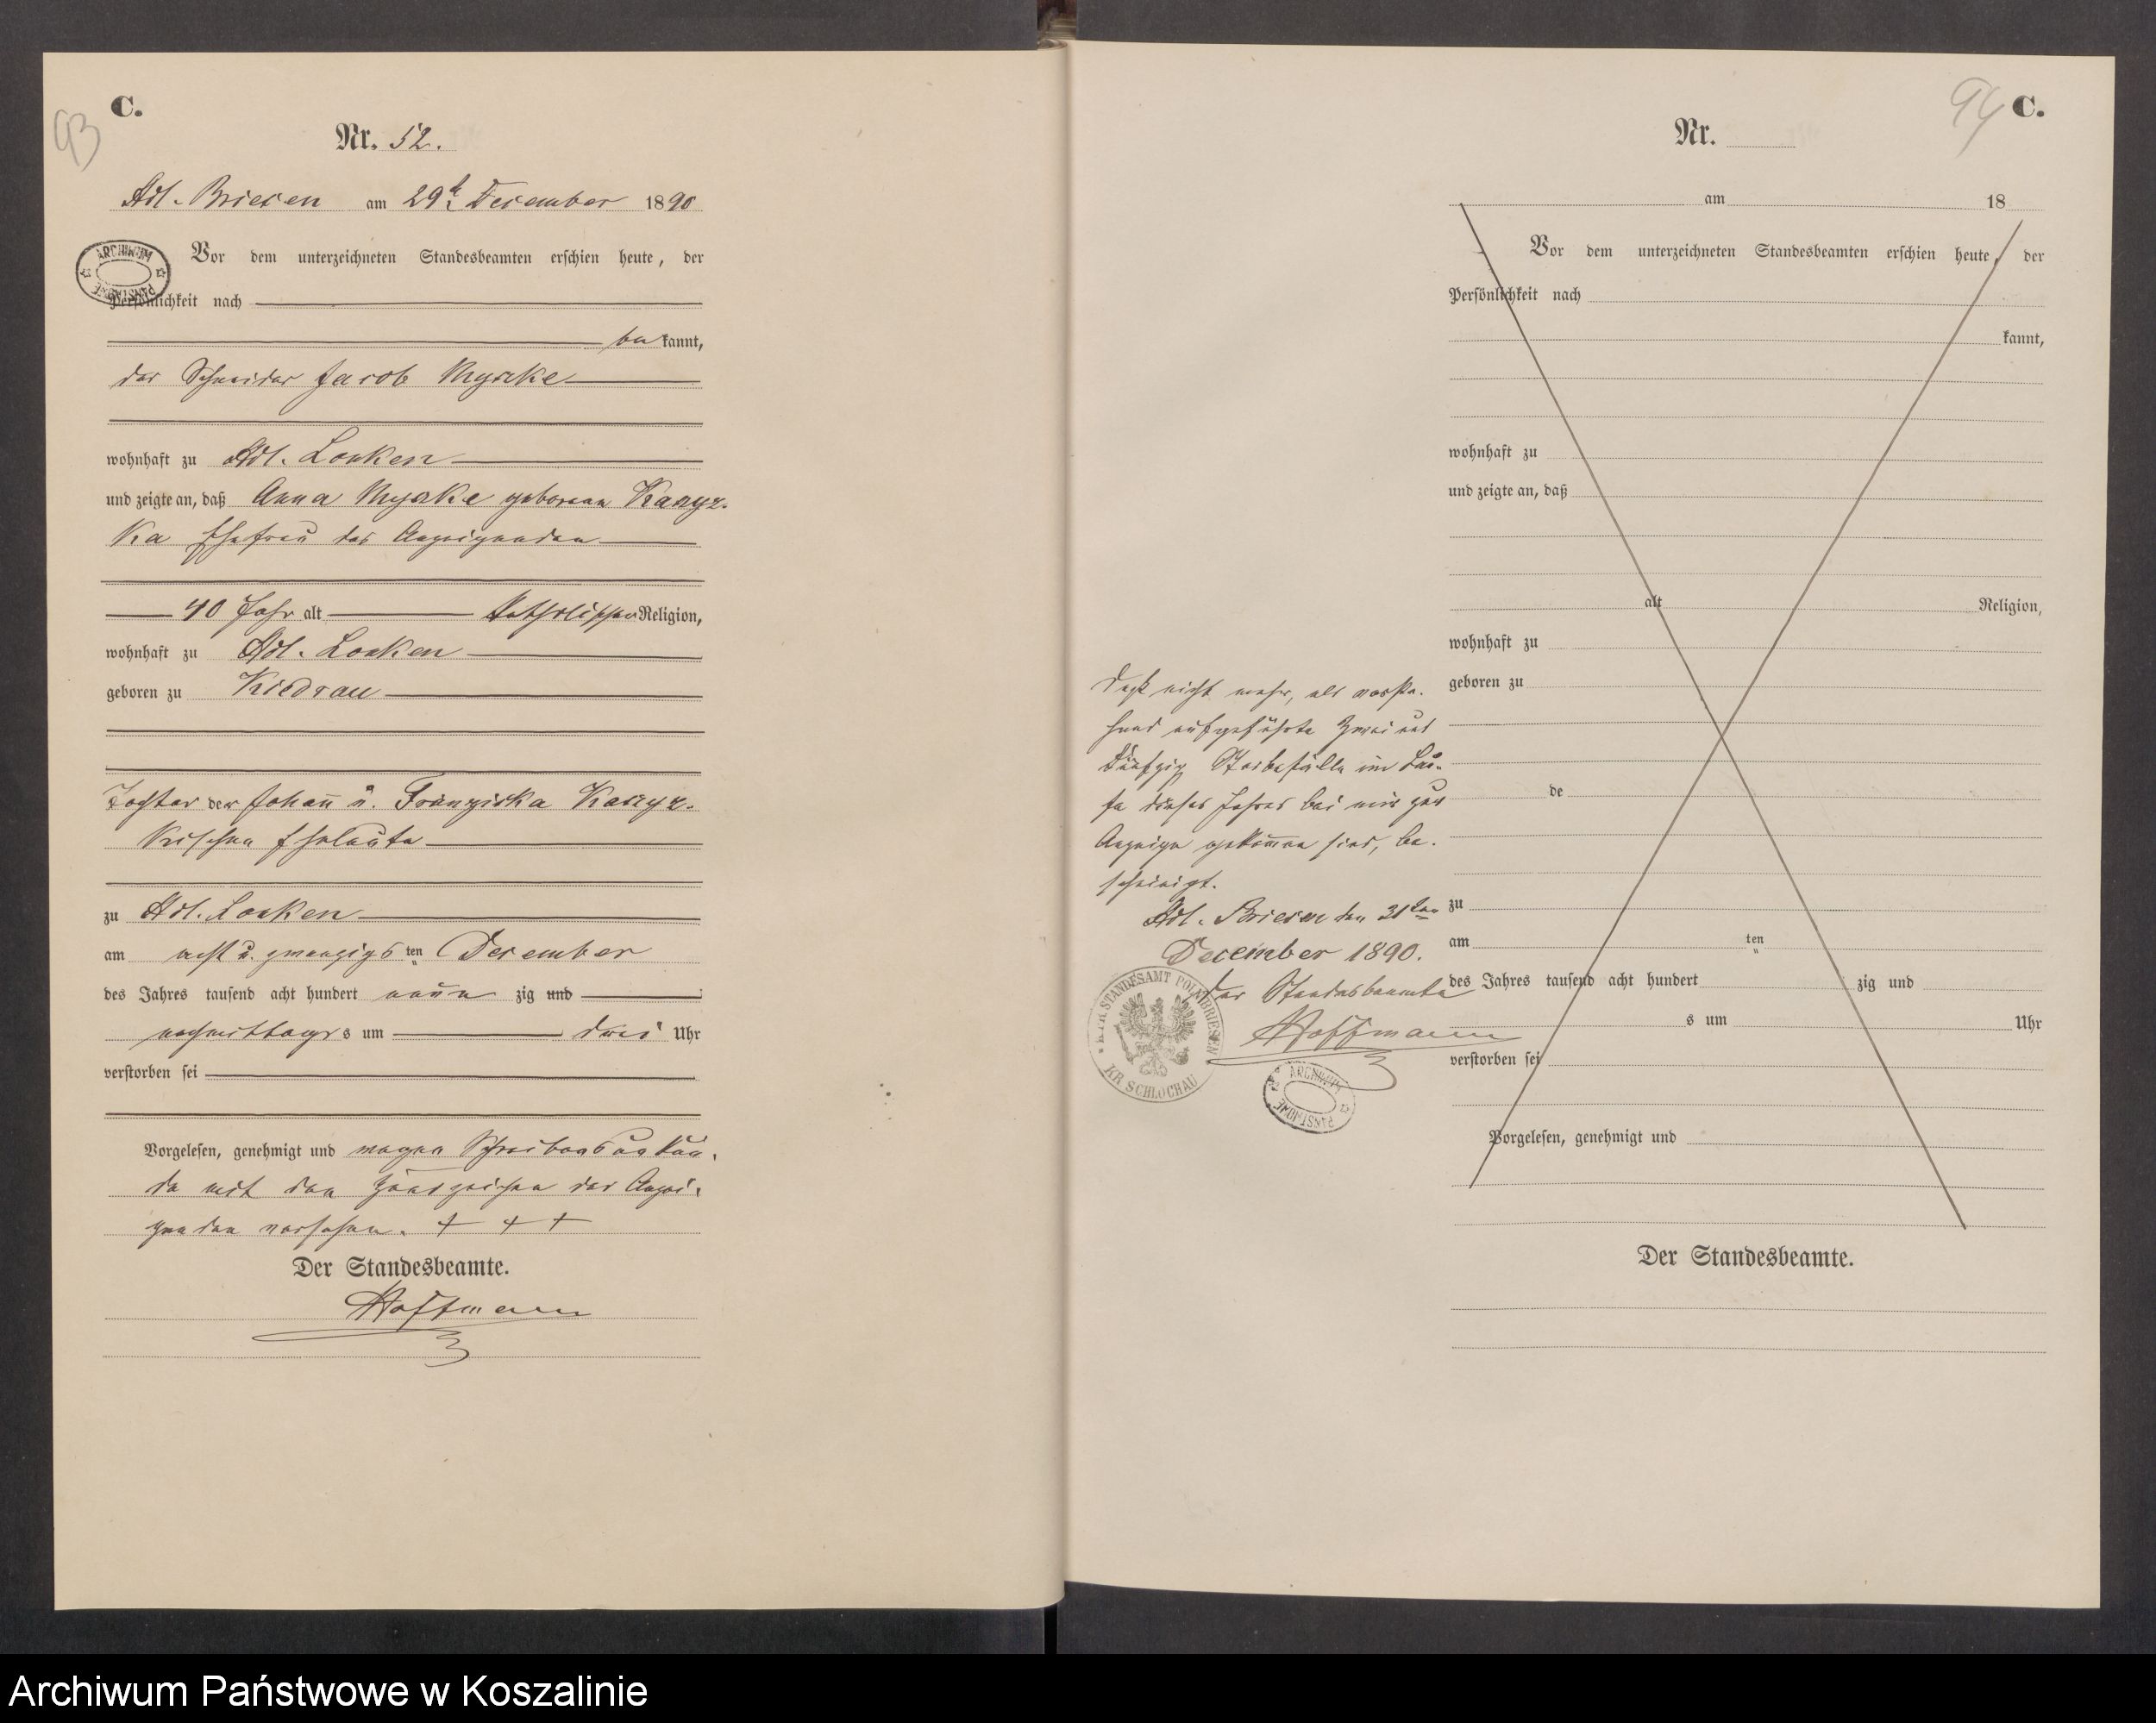 C.
93
Nr. 52.
Adl. Briesen am 29t. December 1890
Vor dem unterzeichneten Standesbeamten erschien heute, der
Persönlichkeit nach
be kannt,
der Schneider Jacob
wohnhaft zu Adl. Lonken
und zeigte an, daß Anna geborene
ka Ehefrau des Anzeigenden
40 Jahr alt katholischer Religion,
wohnhaft zu Adl. Lonken
geboren zu Kiedrau
Tochter der Johann u. Franziska
Eheleute
zu Adl. Lonken
am acht u. zwanzigs ten December
des Jahres tausend acht hundert neun zig und
nachmittags um drei Uhr
verstorben sei
Vorgelesen, genehmigt und wegen Schreibensunkun-
de mit den Handzeichen des Anzei-
genden versehen. + + +
Der Standesbeamte.
Hoffmann
ARCHIWUM PAŃSTWOWE
94 C.
Nr.
am 18
Vor dem unterzeichneten Standesbeamten erschien heute, der
Persönlichkeit nach
kannt,
wohnhaft zu
und zeigte an, daß
alt Religion,
wohnhaft zu
geboren zu
de
zu
am ten
des Jahres tausend acht hundert zig und
s um Uhr
verstorben sei
Vorgelesen, genehmigt und
Der Standesbeamte.
Daß nicht mehr, als vorste-
hend aufgeführte zwei und
fünfzig Sterbefälle im Lau-
fe dieses Jahres bei mir zur
Anzeige gekom̄en sind, be-
scheinigt.
Adl. Briesen den 31ten
December 1890.
Der Standesbeamte
Hoffmann
STANDESAMT POLN. BRIESEN
KR SCHLOCHAU
ARCHIWUM PAŃSTWOWE
Archiwum Państwowe w Koszalinie